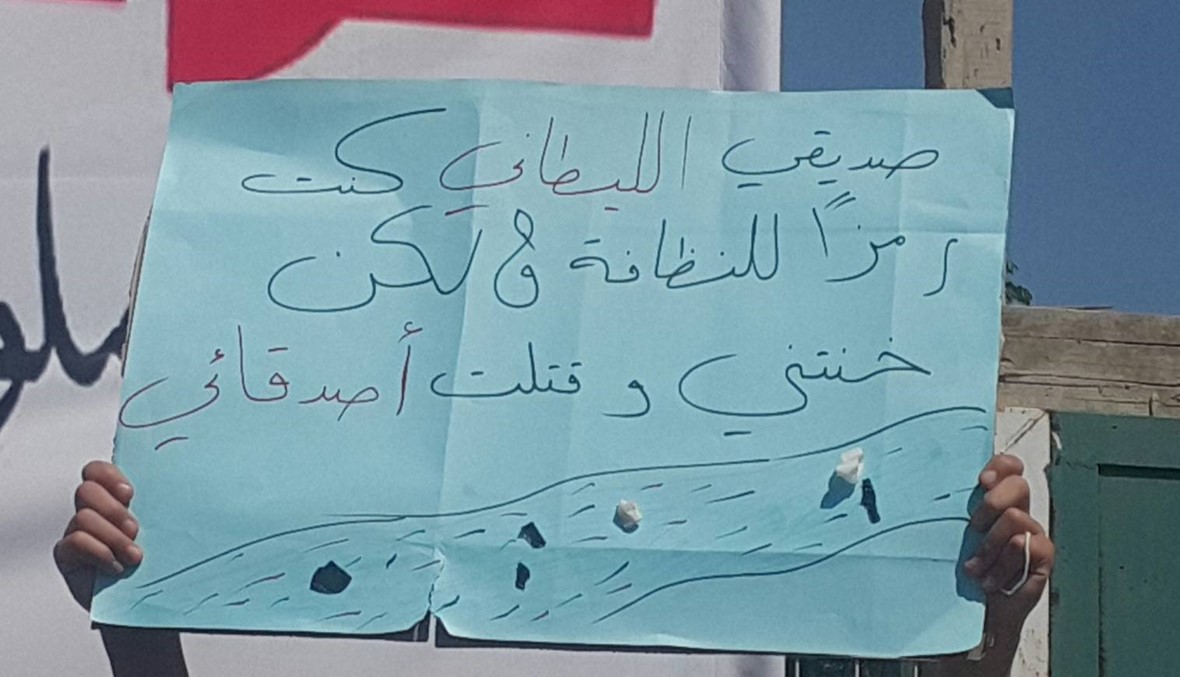 صديقي الليطاني كنت
رمزًا للنظافة ولكن
خنتني و قتلت أصدقائي